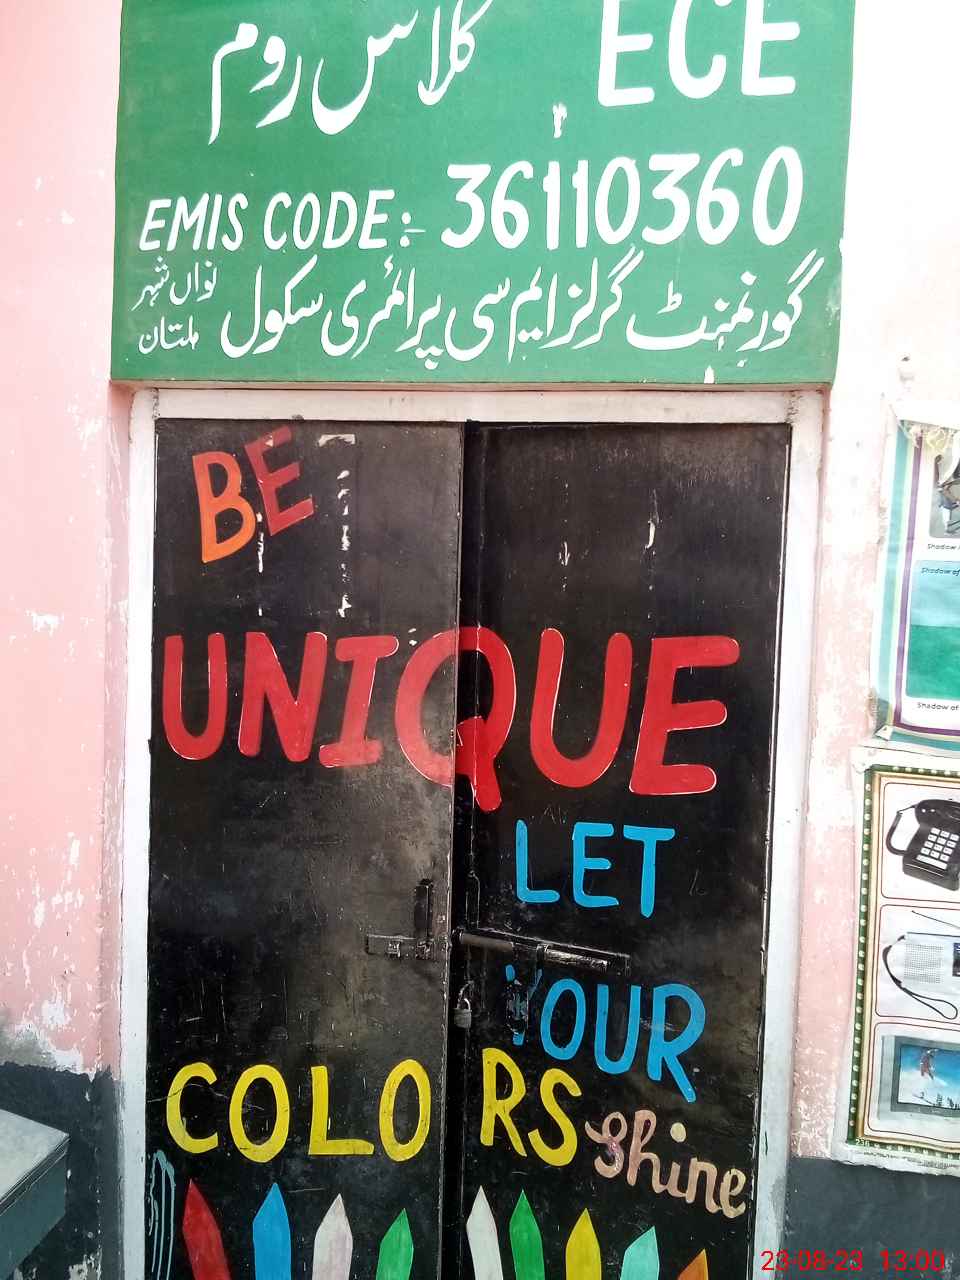 ECE کلاس روم
EMIS CODE:- 36110360
گورنمنٹ گرلز ایم سی پرائمری سکول نواں شہر
ملتان
BE
UNIQUE
LET
YOUR
COLORS
Shine
Shadow of
Shadow of
236
23-08-23 13:00